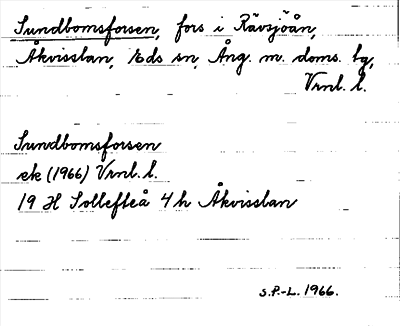 Sundbomsforsen, fors i Rävsjöån,
Åkvisslan, Eds sn, Ång. m. doms. lg,
Vrnl. l.
Sundbomsforsen
ek (1966) Vrnl. l.
19 H Sollefteå 4 h Åkvisslan
S.P.-L. 1966.